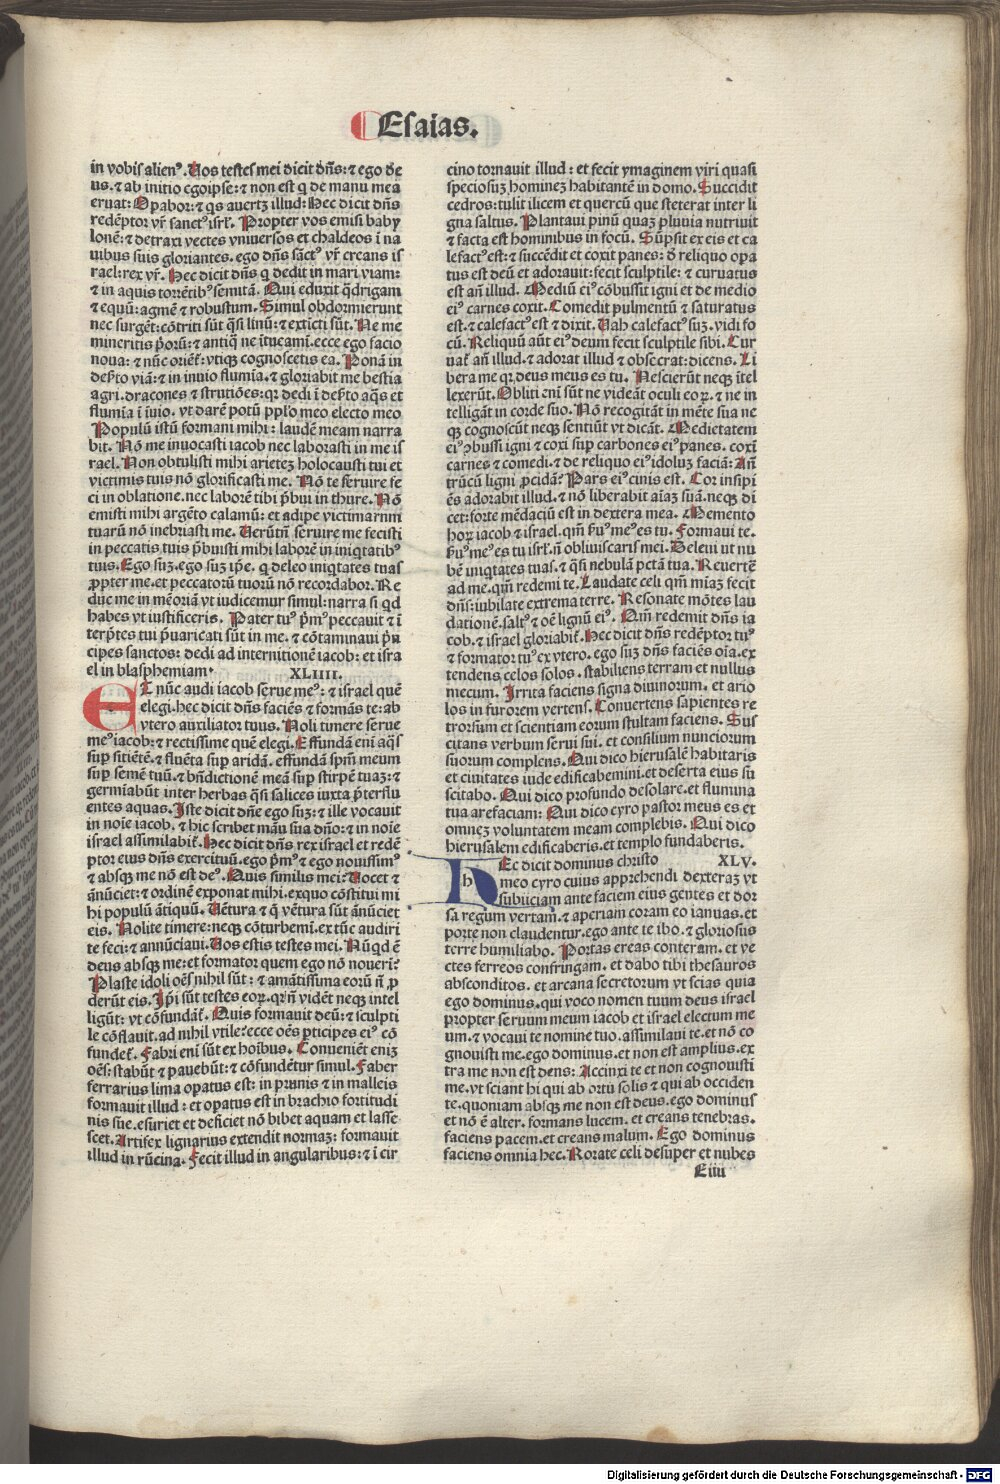 Esaias.
in vobis alienꝰ. Uos testes mei dicit dn̄s: ⁊ ego de
us. ⁊ ab initio ego ipse: ⁊ non est q̇ de manu mea
eruat: Opabor: ⁊ q̇s auertꝫ illud: Hec dicit dn̄s
redēptor vr̄ sanctꝰ isrl̄. Propter vos emisi baby
lonē: ⁊ detraxi vectes vniuersos et chaldeos ī na
uibus suis gloriantes. ego dn̄s sāctꝰ vr̄ creans is
rael: rex vr̄. Hec dicit dn̄s q̇ dedit in mari viam:
⁊ in aquis torrētibꝰ semitā. Qui eduxit q̄drigam
⁊ equū: agmē ⁊ robustum. Simul obdormierunt
nec surgēt: cōtriti sūt q̄si linū: ⁊ extīcti sūt. Ne me
mineritis p̄orū: ⁊ antiq̄ ne ītueami. ecce ego facio
noua: ⁊ nūc oriēt̄: vtiqꝫ cognoscetis ea. Ponā in
deẜto viā: ⁊ in inuio flumīa. ⁊ gloriabit me bestia
agri. dracones ⁊ strutiōes: qꝛ dedi ī deẜto aq̄s et
flumīa ī īuio. vt darē potū pplo meo electo meo
Populū istū formani mihi: laudē meam narra
bit. Nō me inuocasti iacob nec laborasti in me is
rael. Non obtulisti mihi arieteꝫ holocausti tui et
victimis tuis nō glorificasti me. Nō te seruire fe
ci in oblatione. nec laborē tibi p̄bui in thure. Nō
emisti mihi argēto calamū: et adipe victimarum
tuarū nō inebriasti me. Uerūtn̄ seruire me fecisti
in peccatis tuis p̄buisti mihi laborē in iniq̇tatibꝰ
tuis. Ego suꝫ. ego suꝫ ip̄e. q̇ deleo iniq̇tates tuas
ꝓpter me. et peccatorū tuorū nō recordabor. Re
duc me in mēoriā vt iudicemur simul: narra si qd
habes vt iustificeris. Pater tuꝰ p̄mꝰ peccauit ⁊ ī
terp̄tes tui p̄uaricati sūt in me. ⁊ cōtaminaui p̄n
cipes sanctos: dedi ad internitionē iacob: et isra
el in blasphemiam. XLIIII.
Et nūc audi iacob serue meꝰ: ⁊ israel quē
elegi. hec dicit dn̄s faciēs ⁊ formās te: ab
vtero auxiliator tuus. Noli timere serue
meꝰ iacob: ⁊ rectissime quē elegi. Effundā eni aq̄s
suꝑ sitiētē. ⁊ fluēta suꝑ aridā. effundā spm̄ meum
suꝑ semē tuū. ⁊ bn̄dictionē meā suꝑ stirpē tuaꝫ: ⁊
germiabūt inter herbas q̄si salices iuxta p̄terflu
entes aquas. Iste dicit dn̄e ego sūꝫ: ⁊ ille vocauit
in noīe iacob. ⁊ hic scribet manu sua dn̄o: ⁊ in noīe
israel assimilabit̄. Hec dicit dn̄s rex israel et redē
ptor eius dn̄s exercituū. ego p̄mꝰ ⁊ ego nouissimꝰ
⁊ absqꝫ me nō est deꝰ. Quis similis mei: Uocet ⁊
ānūciet: ⁊ ordinē exponat mihi. ex quo cōstitui mi
hi populū ātiquū. Uētura ⁊ q̄ vētura sūt ānūciet
eis. Nolite timere: neqꝫ cōturbemi. ex tūc audiri
te feci: ⁊ annūciaui. Uos estis testes mei. Nūqd ē
deus absqꝫ me: et formator quem ego nō nouerī:
Plaste idoli oēs nihil sūt: ⁊ amātissima eorū n̄ ꝓ
derūt eis. Ip̄i sūt testes eoꝝ. qꝛ n̄ vidēt neqꝫ intel
ligūt: vt cōfundāt̄. Quis formauit deū: ⁊ sculpti
le cōflauit. ad nihil vtile: ecce oēs ꝑticipes eiꝰ cō
fundet̄. Fabri eni sūt ex hoībus. Conueniēt eniꝫ
oēs: stabūt ⁊ pauebūt: ⁊ cōfundētur simul. Faber
ferrarius lima opatus est: in prunis ⁊ in malleis
formauit illud: et opatus est in brachio fortitudi
nis sue. esuriet et deficiet nō bibet aquam et lasse
scet. Artifex lignarius extendit normaꝫ: formauit
illud in rūcina. Fecit illud in angularibus: ⁊ ī cir
cino tornauit illud: et fecit ymaginem viri quasi
speciosuꝫ homineꝫ habitantē in domo. Succidit
cedros: tulit ilicem et quercū que steterat inter li
gna saltus. Plantaui pinū quaꝫ pluuia nutriuit
⁊ facta est hominibus in focū. Sūpsit ex eis et ca
lefactꝰ est: ⁊ succēdit et coxit panes: d̄ reliquo opa
tus est deū et adorauit: fecit sculptile: ⁊ curuatus
est an̄ illud. Mediū eiꝰ cōbussit igni et de medio
eiꝰ carnes coxit. Comedit pulmentū ⁊ saturatus
est. ⁊ calefactꝰ est ⁊ dixit. Uah calefactꝰ suꝫ. vidi fo
cū. Reliquū aūt eiꝰ deum fecit sculptile sibi. Cur
uat̄ an̄ illud. ⁊ adorat illud ⁊ obsecrat: dicens. Li
bera me qꝛ deus meus es tu. Nescierūt neqꝫ ītel
lexerūt. Obliti eni sūt ne videāt oculi eoꝝ. ⁊ ne in
telligāt in corde suo. Nō recogitāt in mēte sua ne
qꝫ cognoscūt neqꝫ sentiūt vt dicāt. Medietatem
eiꝰ ꝯbussi igni ⁊ coxi suꝑ carbones eiꝰ panes. coxi
carnes ⁊ comedi. ⁊ de reliquo eiꝰ idoluꝫ faciā: An̄
trūcū ligni ꝓcidā: Pars eiꝰ cinis est. Cor insipi
ēs adorabit illud. ⁊ nō liberabit aīaꝫ suā. neqꝫ di
cet: forte mēdaciū est in dextera mea. Memento
hoꝝ iacob ⁊ israel. qm̄ ẜuꝰ meꝰ es tu. Formaui te.
ẜuꝰ meꝰ es tu isrl̄. n̄ obliuiscaris mei. Deleui ut nu
bē iniq̇tates tuas. ⁊ q̄si nebulā pctā tua. Reuertē
ad me. qm̄ redemi te. Laudate celi qm̄ miaꝫ fecit
dn̄s: iubilate extrema terre. Resonate mōtes lau
dationē. saltꝰ ⁊ oē lignū eiꝰ. Qm̄ redemit dn̄s ia
cob. ⁊ israel gloriabit̄. Hec dicit dn̄s redēptor tuꝰ
⁊ formator tuꝰ ex vtero. ego suꝫ dn̄s faciēs oīa. ex
tendens celos solos. stabiliens terram et nullus
mecum. Irrita faciens signa diuinorum. et ario
los in furorem vertens. Conuertens sapientes re
trorsum et scientiam eorum stultam faciens. Sus
citans verbum serui sui. et consilium nunciorum
suorum complens. Qui dico hierusalē habitaris
et ciuitates iude edificabemini. et deserta eius su
scitabo. Qui dico profundo desolare. et flumina
tua arefaciam: Qui dico cyro pastor meus es et
omneꝫ voluntatem meam complebis. Qui dico
hierusalem edificaberis. et templo fundaberis.
Hec dicit dominus christo XLV.
meo cyro cuius apprehendi dexteraꝫ vt
subiiciam ante faciem eius gentes et dor
sa regum vertam. ⁊ aperiam coram eo ianuas. et
porte non claudentur. ego ante te ibo. ⁊ gloriosus
terre humiliabo. Portas ereas conteram. et ve
ctes ferreos confringam. et dabo tibi thesauros
absconditos. et arcana secretorum vt scias quia
ego dominus. qui voco nomen tuum deus israel
propter seruum meum iacob et israel electum me
um. ⁊ vocaui te nomine tuo. assimilaui te. et nō co
gnouisti me. ego dominus. et non est amplius. ex
tra me non est dens: Accinxi te et non cognouisti
me. vt sciant hi qui ab ortu solis ⁊ qui ab occiden
te. quoniam absqꝫ me non est deus. ego dominus
et nō ē alter. formans lucem. et creans tenebras.
faciens pacem. et creans malum. Ego dominus
faciens omnia hec. Rorate celi desuper et nubes
Eiiii
Digitalisierung gefördert durch die Deutsche Forschungsgemeinschaft - DFG